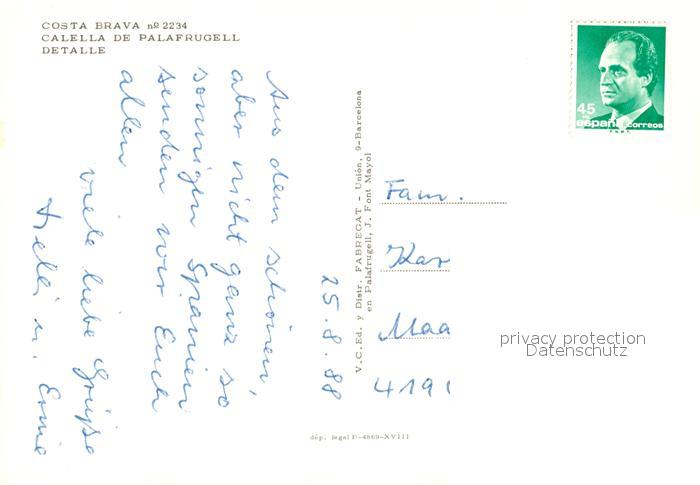 COSTA BRAVA nº 2234
CALELLA DE PALAFRUGELL
DETALLE
Aus dem schönen,
aber nicht ganz so
sonnigen Spanien
senden wir Euch
allen
viele liebe Grüße
25.8.88
V.C.Ed. y Distr. FABREGAT - Unión, 9-Barcelona
en Palafrugell, J. Font Mayol
45
españa correos
Fam.
Kar
Maa
4191
privacy protection
Datenschutz
dép. legal B-4869-XVIII